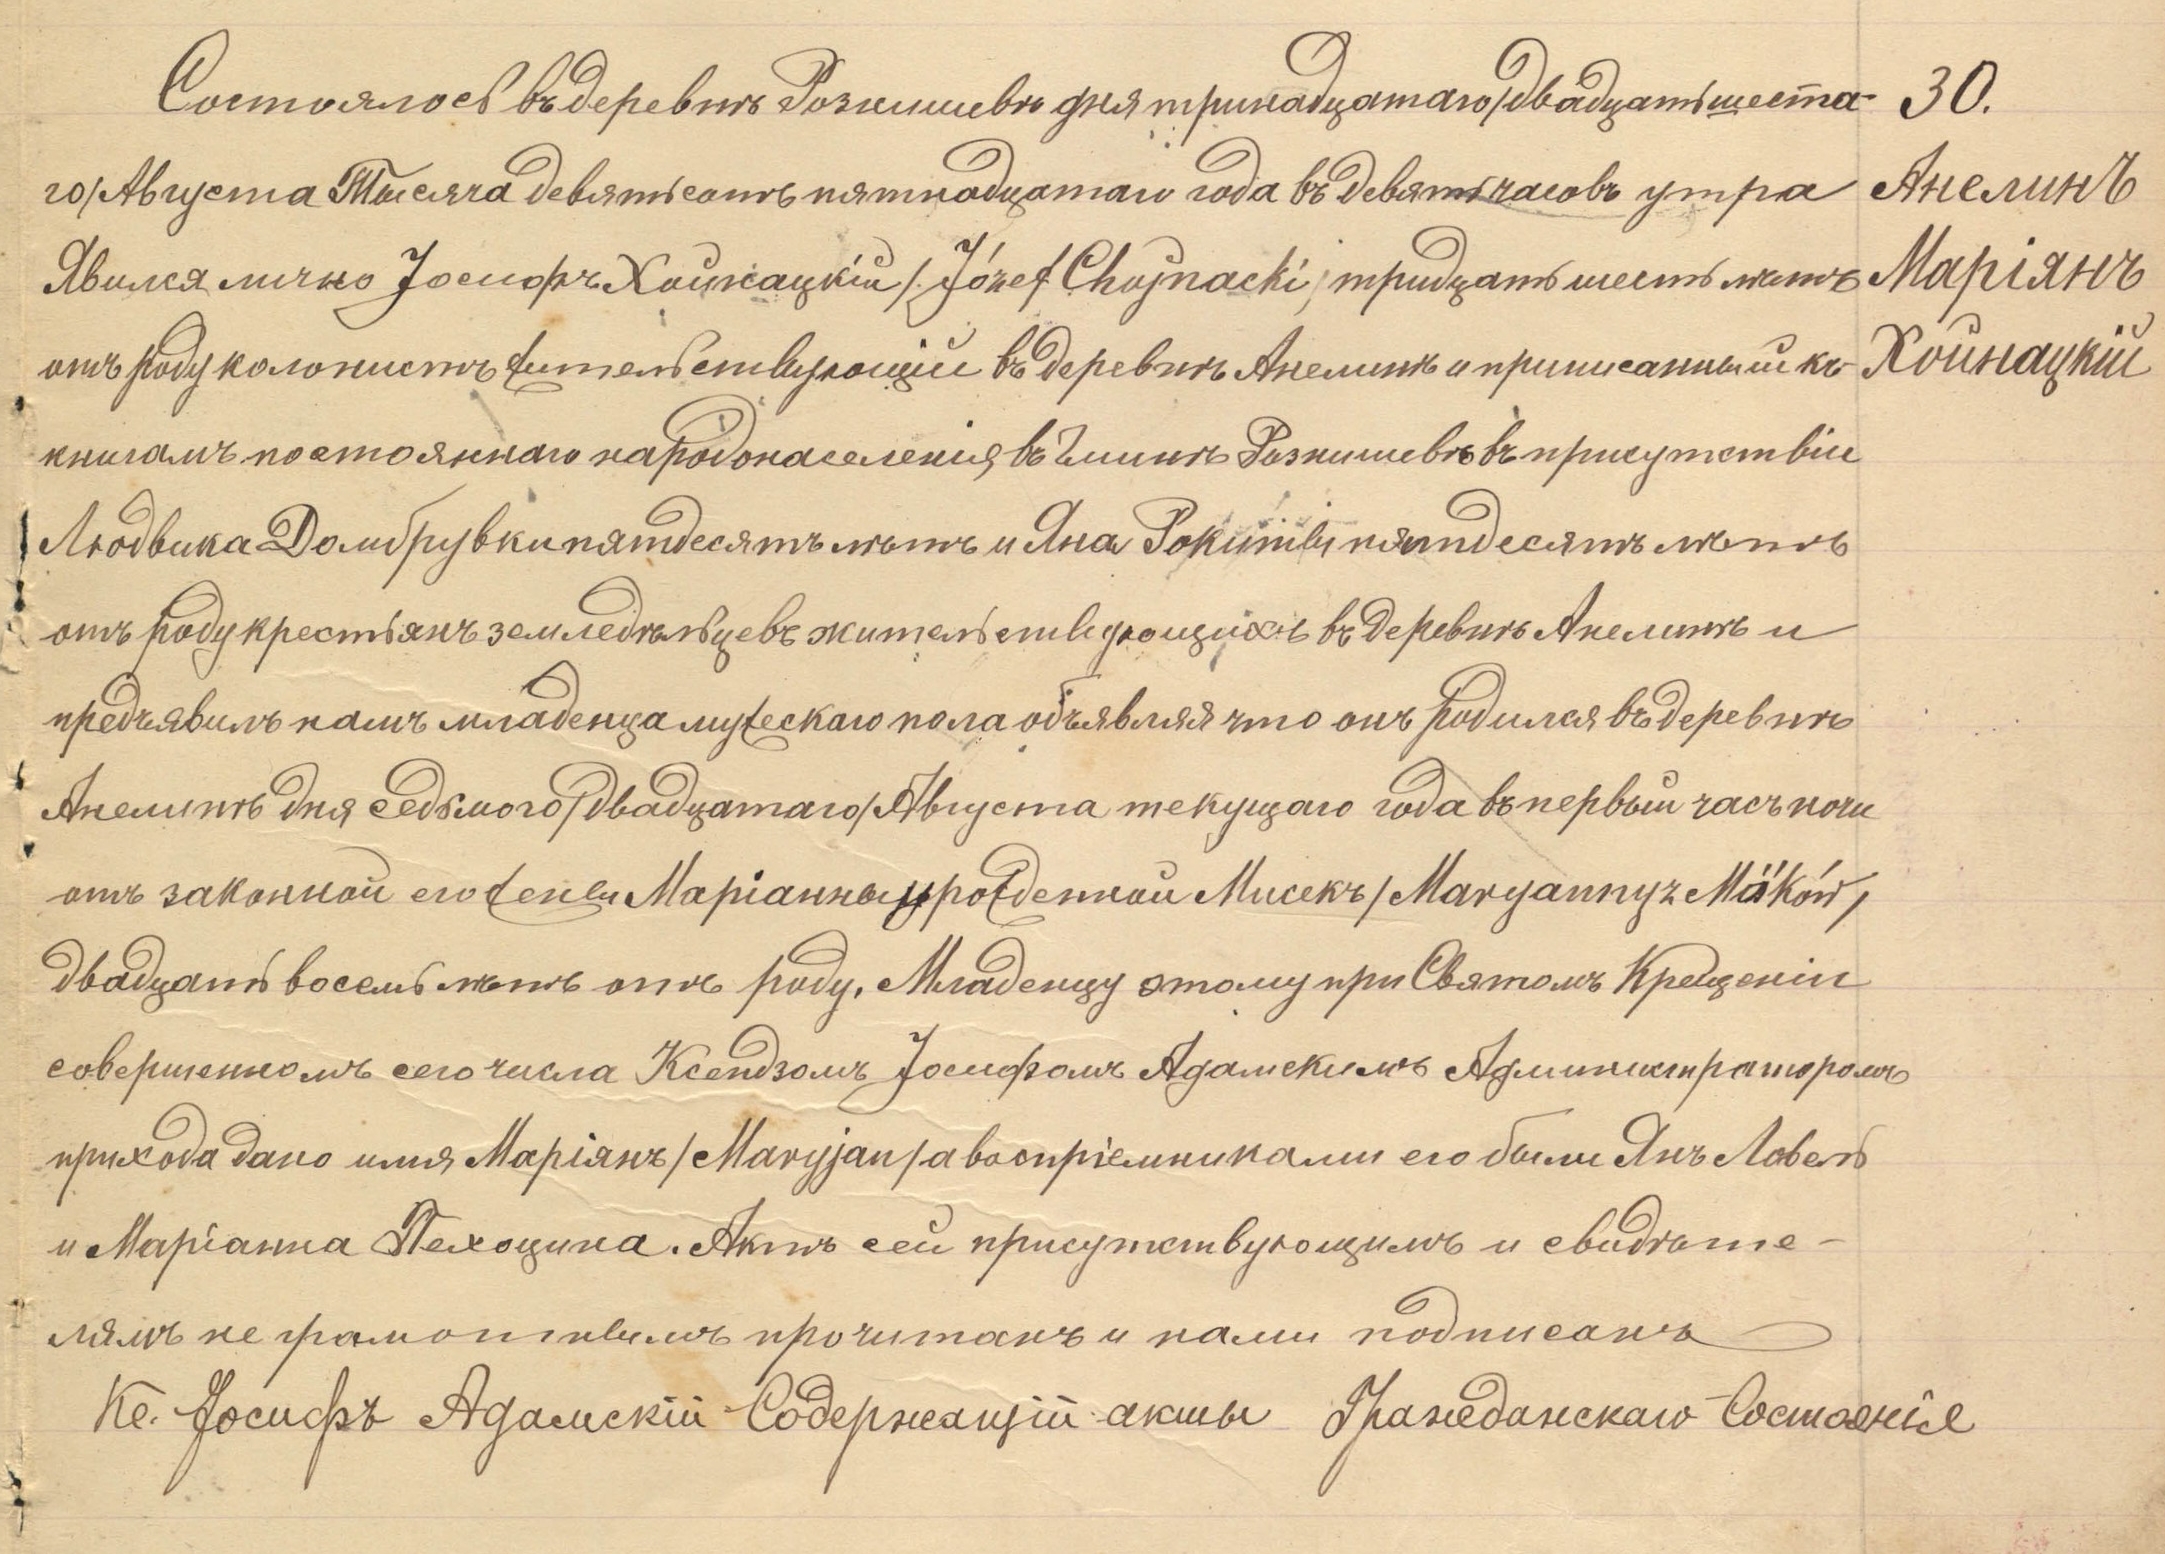 Состоялось въ деревнѣ Рознишевѣ дня тринадцатаго/двадцать шеста-
го/Августа Тысяча девятьсотъ пятнадцатаго года въ девять часовъ утра
Явился лично Іосифъ Хойнацкій /Józef Chojnacki/ тридцать шесть лѣтъ
отъ роду колонистъ жительствующій въ деревнѣ Анелинѣ и приписанный къ
книгамъ постояннаго народонаселенія въ Гминѣ Рознишевѣ въ присутствіи
Людвика Домбрувки пятдесятъ лѣтъ и Яна пятдесятъ лѣтъ
отъ роду крестьянъ земледѣльцевъ жительствующихъ въ деревнѣ Анелинѣ и
предъявилъ намъ младенца мужескаго пола объявляя что онъ родился въ деревнѣ
Анелинѣ дня седьмого/двадцатаго/Августа текущаго года въ первый часъ ночи
отъ законной его жены Маріанны урожденной Мисекъ /Maryanny z
двадцать восемь лѣтъ отъ роду. Младенцу этому при Святомъ Крещеніи
совершенномъ сего числа Ксендзомъ Іосифомъ Адамскимъ Администраторомъ
прихода дано имя Маріянъ /Maryjan/ а воспріемниками его были Янъ Ловель
и Маріанна Пехоцина. Актъ сей присутствующимъ и свидѣте-
лямъ не грамотнымъ прочитанъ и нами подписанъ
Кс. Іосифъ Адамскій Содержащій акты Гражданскаго Состоянія
30.
Анелинъ
Маріянъ
Хойнацкій